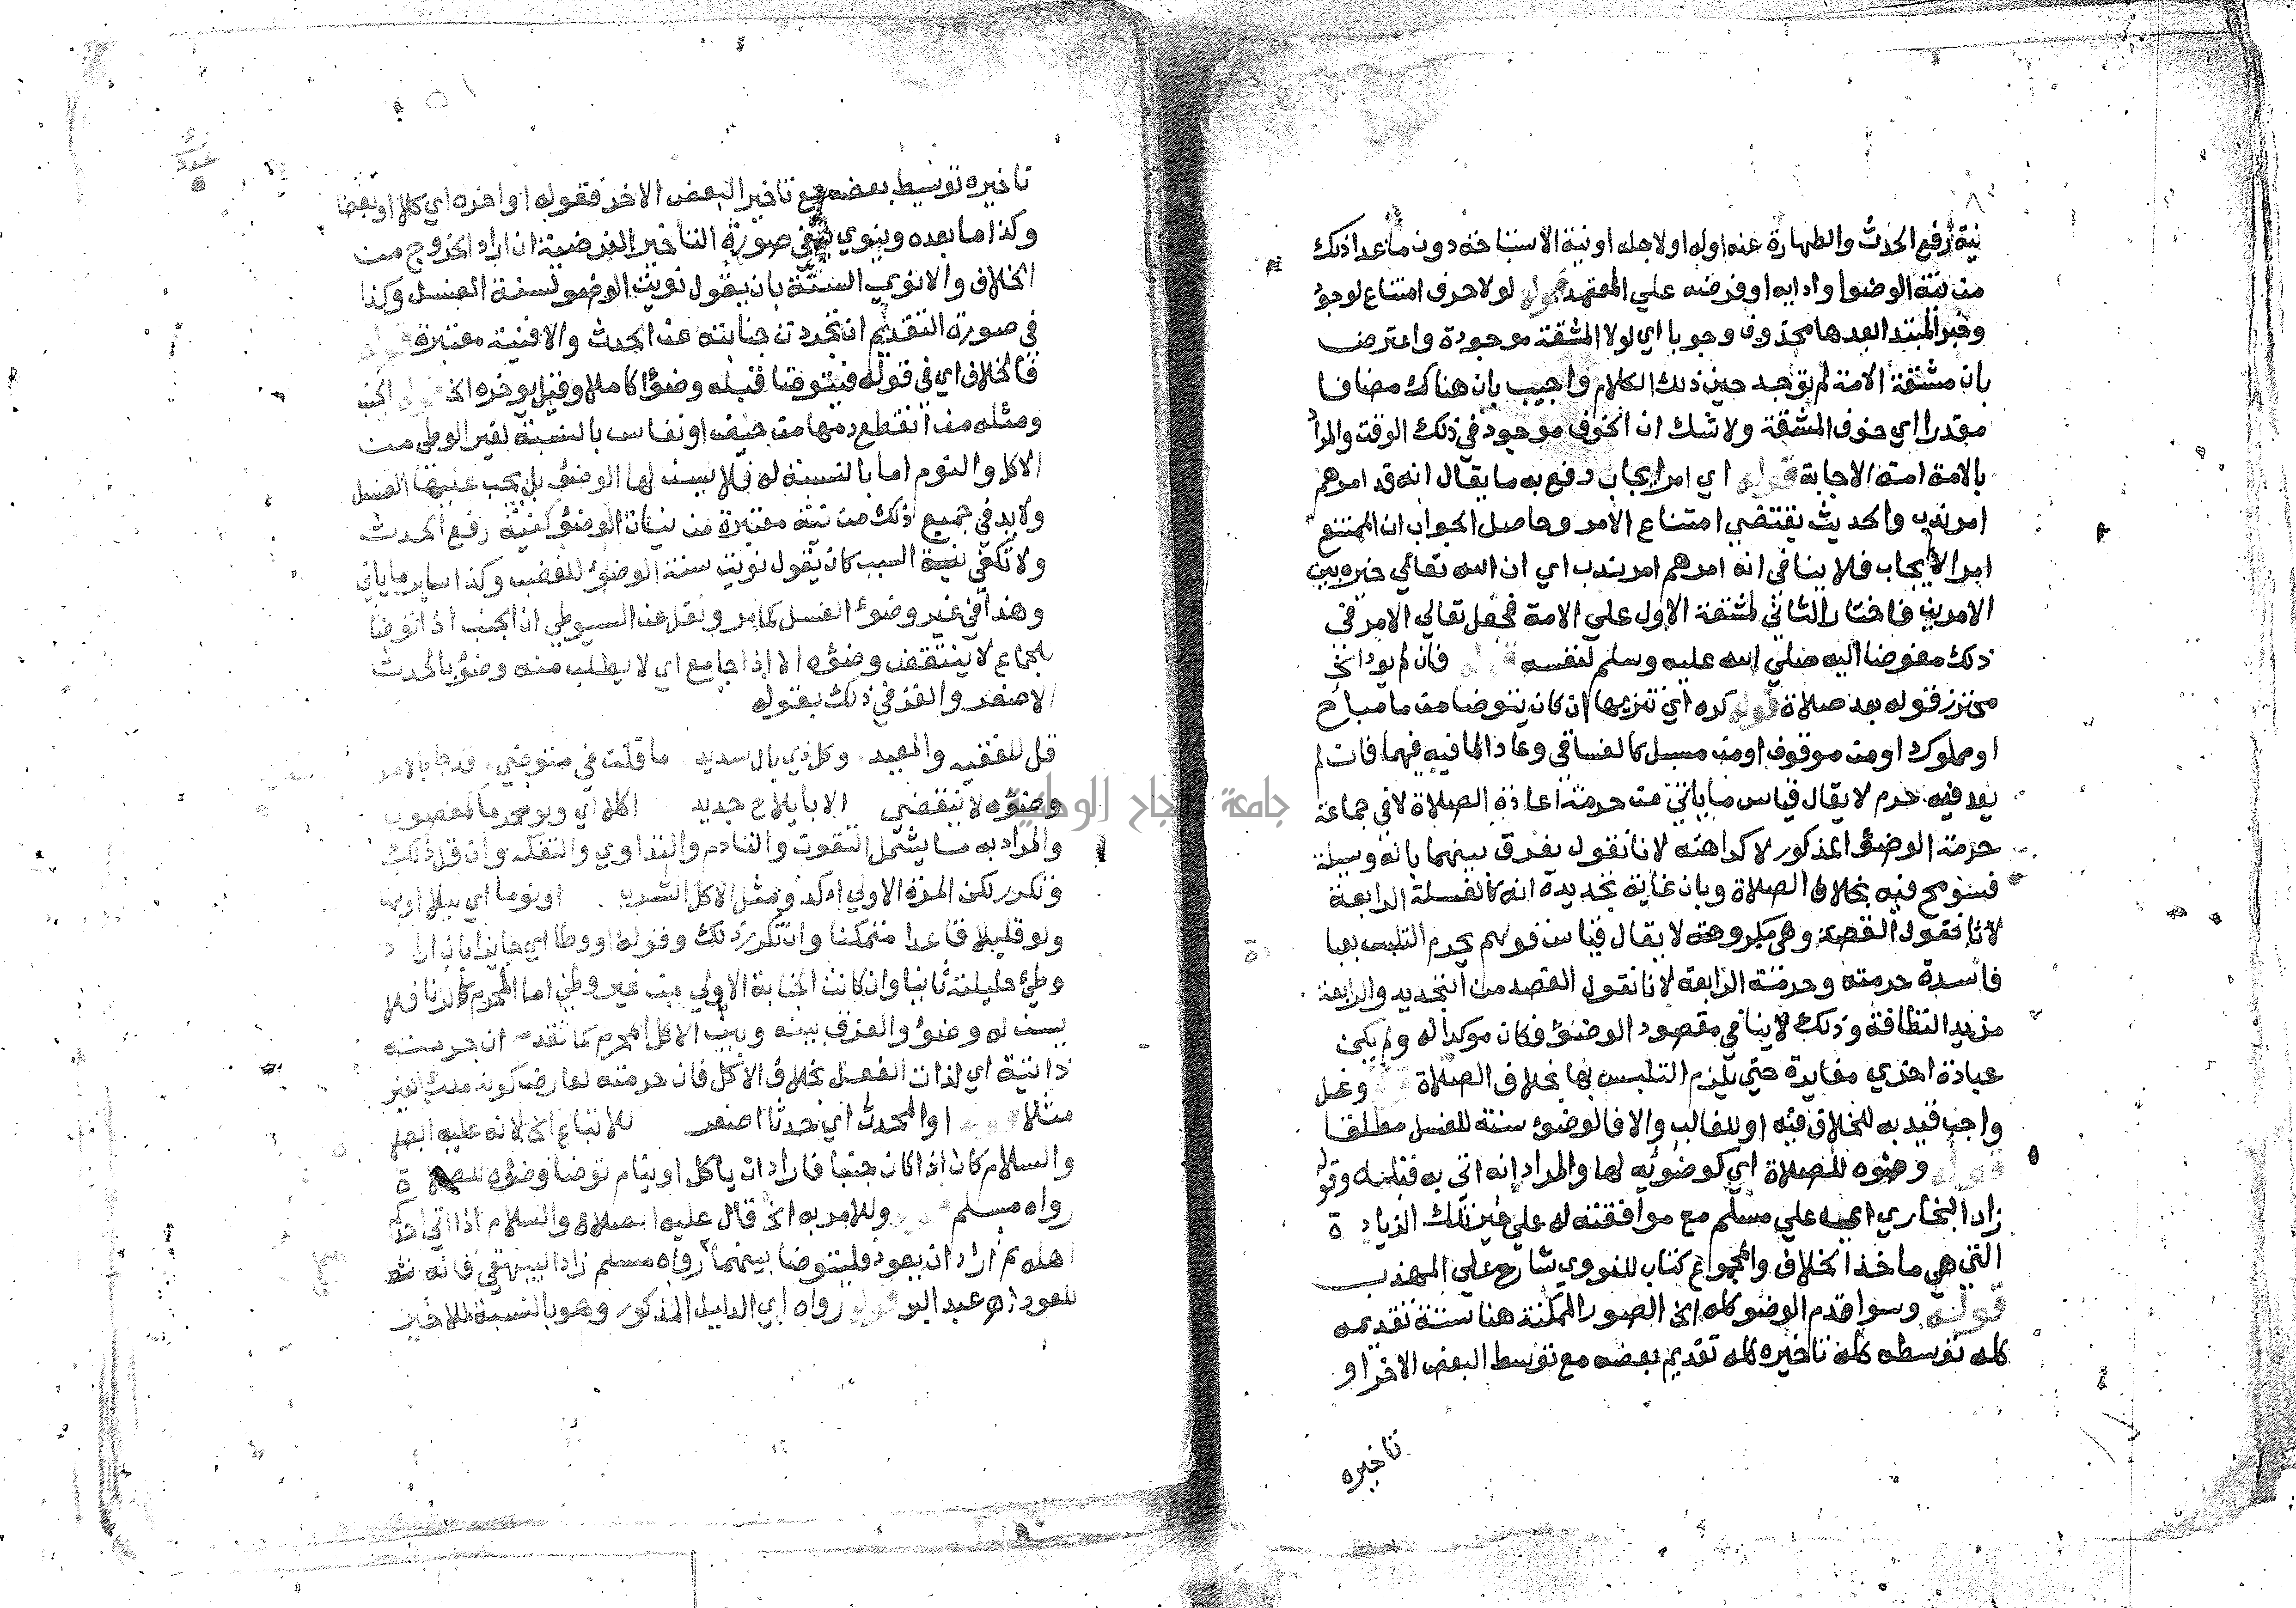 نية رفع الحدث والطهارة عنه او له او لاجله او نية الاستباحة دون ما عدا ذلك
من نية الوضوا وادايه او فرضه علي المعتمد قوله لولا حرف امتناع لوجود
وخبر المبتدا بعدها محذوف وجوبا اي لولا المشقة موجودة واعترض
بان مشقة الامة لم توجد حين ذلك الكلام واجيب بان هناك مضافا
مقدرا اي خوف المشقة ولا شك ان الخوف موجود في ذلك الوقت والمراد
بالامة امة الاجابة قوله اي امر ايجاب دفع به ما يقال انه قد امرهم
امر ندب والحديث يقتضي امتناع الامر وحاصل الجواب ان الممتنع
امر الايجاب فلا ينافي انه امرهم امر ندب اي ان الله تعالي خيره بين
الامرين فاختار الثاني لمشقة الاول علي الامة فجعل تعالي الامر في
ذلك مفوضا اليه صلي الله عليه وسلم لنفسه قوله فان لم يود الخ
محترز قوله بعد صلاة قوله كره اي تنزيها ان كان يتوضا من ما مباح
او مملوك او من موقوف او من مسبل كالفساقي وعاد الما فيه فيهما فان لم
يعد فيه حرم لا يقال قياس ما ياتي من حرمة اعادة الصلاة لا في جماعة
حرمة الوضؤ المذكور لا كراهته لانا نقول يفرق بينهما بانه وسيلة
فسومح فيه بخلاف الصلاة وبان غاية تجديده انه كالغسلة الرابعة
لانا نقول القصد وهي مكروهة لا يقال قياس قولهم يحرم التلبس بها
فاسدة حرمته وحرمة الرابعة لانا نقول القصد من التجديد والرابعة
مزيد النظافة وذلك لا ينافي مقصود الوضؤ فكان موكدا له ولم يكن
عبادة اخري مغايرة حتي يلزم التلبس بها بخلاف الصلاة وغسل
واجب قيد به للخلاف فيه او للغالب والا فالوضوء سنة للغسل مطلقا
قوله وضوه للصلاة اي كوضوئه لها والمراد انه اتي به قبله وقوله
زاد البخاري اي علي مسلم مع موافقته له علي غير تلك الزيادة
التي هي ماخذ الخلاف والمجموع كتاب للنووي شارح علي المهذب
قوله وسوا قدم الوضو كله الخ الصور الممكنة هنا ستة تقديمه
كله توسطه كله تاخيره كله تقديم بعضه مع توسط البعض الاخر او
تاخيره
تاخيره توسيط بعضه مع تاخير البعض الاخر فقوله او اخره اي كلا او بعضا
وكذا ما بعده وينوي به في صورة التاخير الفرضية ان اراد الخروج من
الخلاف والا نوي السنة بان يقول نويت الوضو لسنة الغسل وكذا
في صورة التقديم ان تجردت جنابته عن الحدث والا فنية معتبرة قوله
فالخلاف اي في قوله فيتوضا قبله وضؤا كاملا وقيل يوخره الخ قوله الجنب
ومثله من انقطع دمها من حيض او نفاس بالنسبة لغير الوطي من
الاكل والنوم اما بالنسبة له فلا يسن لها الوضؤ بل يجب عليها الغسل
ولا بد في جميع ذلك من نية معتبرة من نيات الوضؤ كنية رفع الحدث
ولا تكفي نية السبب كان يقول نويت سنة الوضؤ للغضب وكذا ساير ما ياتي
وهذا في غير وضوء الغسل كما مر ونقل عن السيوطي ان الجنب اذا توضا
للجماع لا ينتقض وضؤه الا اذا جامع اي لا يطلب منه وضؤ بالحدث
الاصغر والغز في ذلك بقوله
قل للفقيه والمفيد وكل ذي بال سديد ما قلت في متوضي قد جا بالامر
وضؤه لا ينتقض الا بايلاج جديد اكلا اي ولو محرما كمغصوب
والمراد به ما يشمل التقوت والتادم والتداوي والتفكه وان قل ذلك
وتكرر لكن المرة الاولي اكد ومثل الاكل الشرب او نوما اي ليلا او نهارا
ولو قليلا قاعدا متمكنا وان تكرر ذلك وقوله او وطا اي جايزا بان اراد
وطئ حليلته ثانيا وان كانت الجنابة الاولي من غير وطئ اما المحرم كالزنا فلا
يسن له وضؤ والفرق بينه وبين الاكل المحرم كما تقدم ان حرمته
ذاتية اي لذات الفعل بخلاف الاكل فان حرمته لعارض كونه ملك الغير
مثلا قوله او المحدث اي حدثا اصغر للاتباع الخ لانه عليه الصلاة
والسلام كان اذا كان جنبا فاراد ان ياكل او ينام توضا وضؤه للصلاة
رواه مسلم قوله وللامر به الخ قال عليه الصلاة والسلام اذا اتي احدكم
اهله ثم اراد ان يعود فليتوضا بينهما رواه مسلم زاد البيهقي فانه انشط
للعود اه عبد البر قوله رواه اي الدليل المذكور وهو بالنسبة للاخير
جامعة النجاح الوطنية